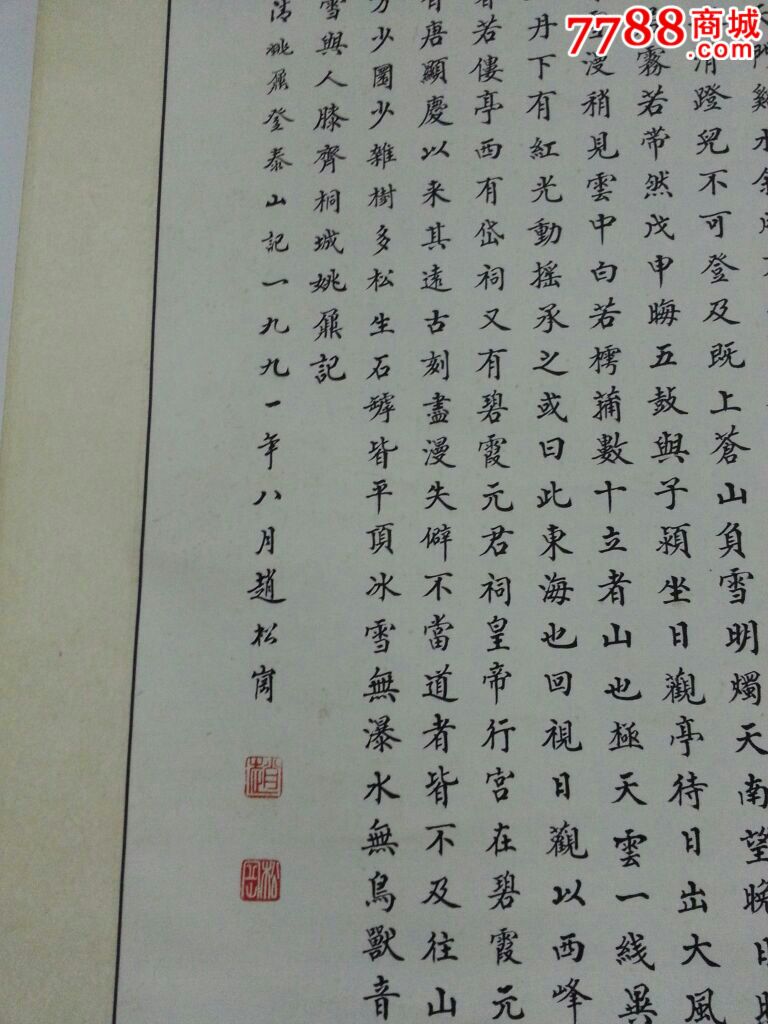 7788商城
.com
門谿水余
滑磴兒不可登及既上蒼山負雪明燭天南望晚日
霧若帶然戊申晦五鼓與子潁坐日觀亭待日出大風
漫稍見雲中白若樗蒱數十立者山也極天雲一綫異
丹下有紅光動搖承之或曰此東海也回視日觀以西峰
若僂亭西有岱祠又有碧霞元君祠皇帝行宮在碧霞元
唐顯慶以来其遠古刻盡漫失僻不當道者皆不及往山
方少圜少雜樹多松生石罅皆平頂冰雪無瀑水無鳥獸音
雪與人膝齊桐城姚鼐記
清姚鼐登泰山記一九九一年八月趙松
趙
松岡